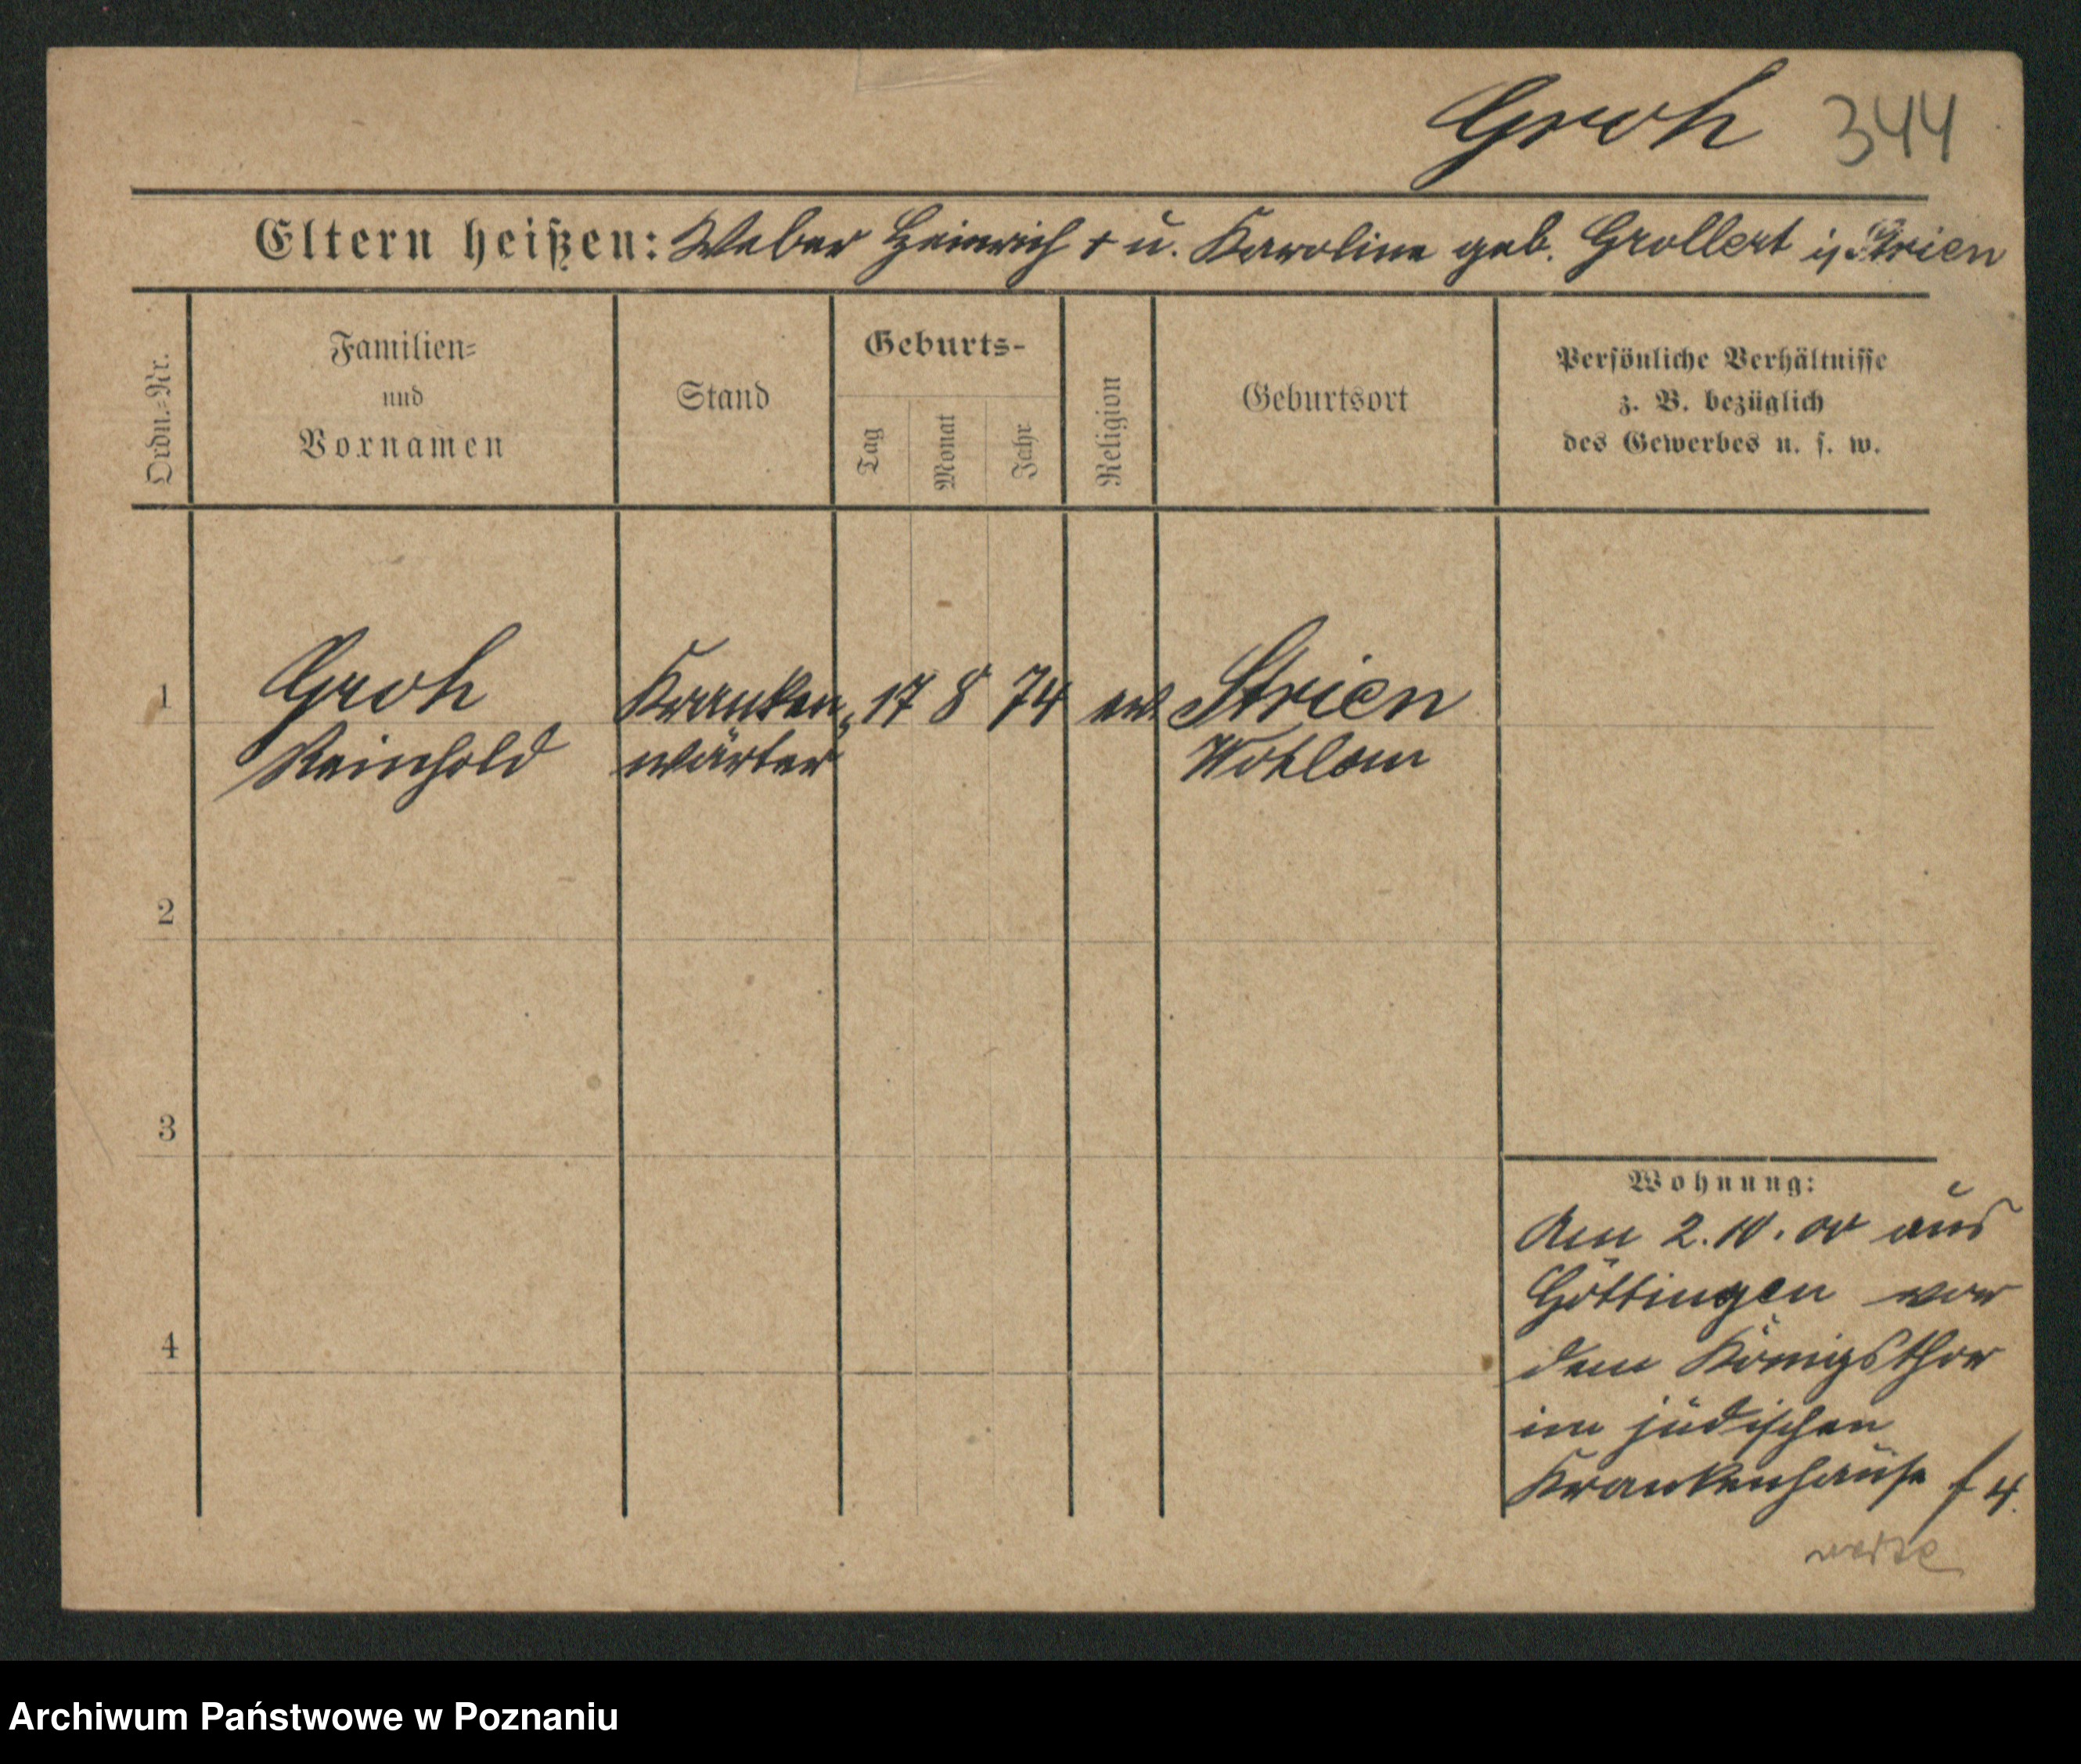 Groh 344
Eltern heißen: Weber Heinrich † u. Karoline geb. Grollert in Strien
Ordn.-Nr.
Familien-
und
Vornamen
Stand
Geburts-
Tag
Monat
Jahr
Religion
Geburtsort
Persönliche Verhältnisse
z. B. bezüglich
des Gewerbes u. s. w.
1 Groh Kranken- 17 8 74 ev. Strien
Reinhold wärter Wohlau
2
3
4
Wohnung:
Am 2.10.00 aus
Göttingen vor
dem Königsthor
im jüdischen
Krankenhause f 4.
Archiwum Państwowe w Poznaniu